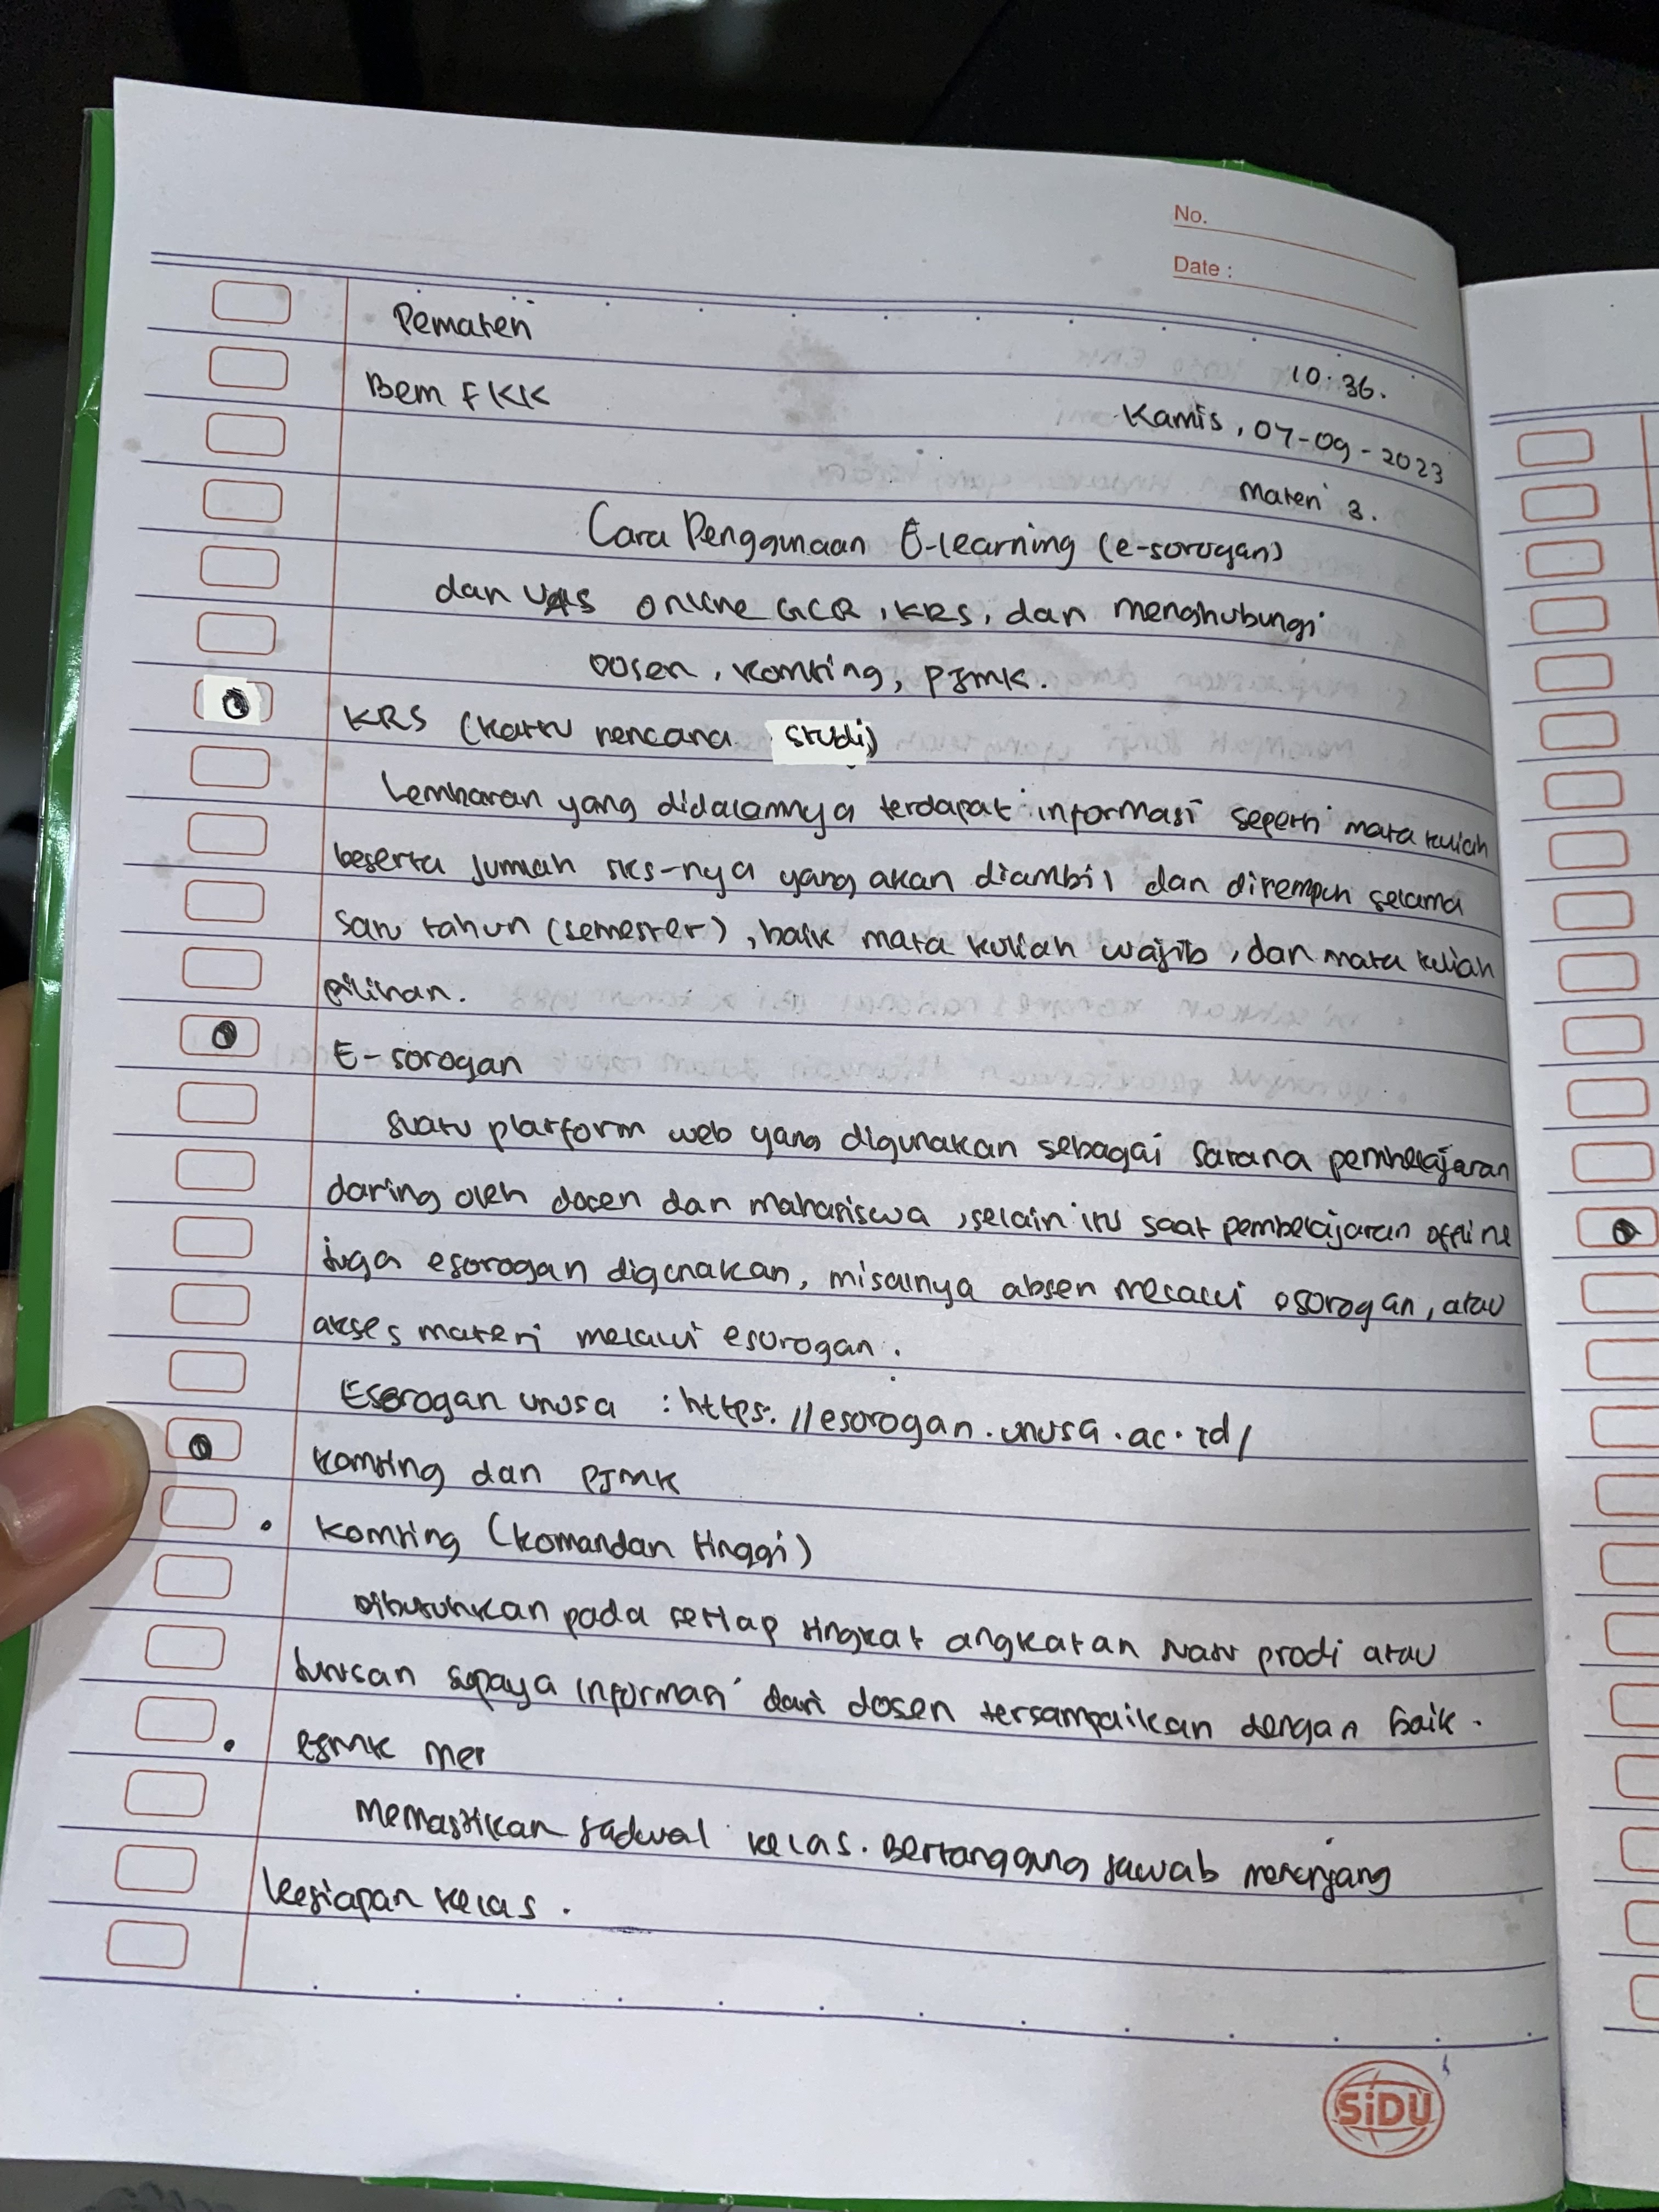 No.
Date :
Pemateri
10:36.
Bem FKK
Kamis, 07-09-2023
Materi 3.
Cara Penggunaan E-learning (e-sorogan)
dan UAS online GCR, KRS, dan menghubungi
Dosen, Komting, PJMK.
KRS (Kartu rencana studi)
Lembaran yang didalamnya terdapat informasi seperti mata kuliah
beserta jumlah sks-nya yang akan diambil dan ditempuh selama
satu tahun (semester), baik mata kuliah wajib, dan mata kuliah
pilihan.
E-sorogan
Suatu platform web yang digunakan sebagai sarana pembelajaran
daring oleh dosen dan mahasiswa, selain itu saat pembelajaran offline
juga esorogan digunakan, misalnya absen melalui esorogan, atau
akses materi melalui esorogan.
Esorogan unusa : https://esorogan.unusa.ac.id/
Komting dan PJMK
• Komting (Komandan tinggi)
Dibutuhkan pada setiap tingkat angkatan suatu prodi atau
jurusan supaya informasi dari dosen tersampaikan dengan baik.
• PJMK
Memastikan jadwal kelas. Bertanggung jawab menunjang
kesiapan kelas.
SiDU